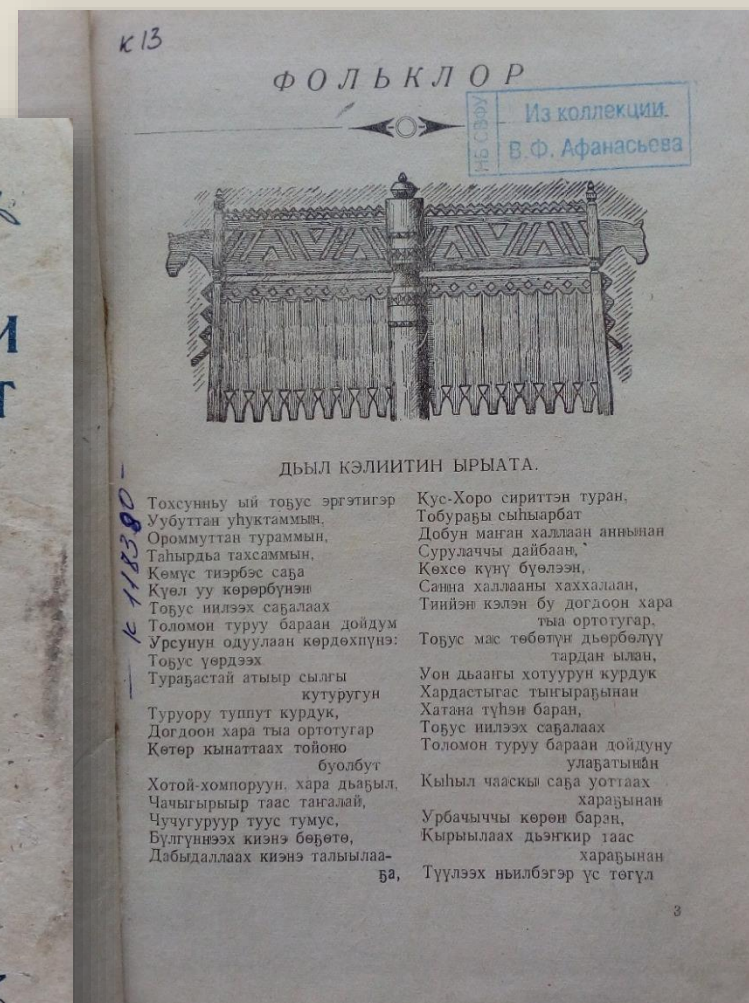 к 13
ФОЛЬКЛОР
НБ СВФУ
Из коллекции
В.Ф. Афанасьева
И
Т
к 118380-
ДЬЫЛ КЭЛИИТИН ЫРЫАТА.
Тохсунньу ый тоҕус эргэтигэр
Уубуттан уһуктаммын,
Ороммуттан тураммын,
Таһырдьа тахсаммын,
Көмүс тиэрбэс саҕа
Күөл уу көрөрбүнэн
Тоҕус иилээх саҕалаах
Толомон туруу бараан дойдум
Урсунун одуулаан көрдөхпүнэ:
Тоҕус үөрдээх
Тураҕастай атыыр сылгы
кутуругун
Туруору туппут курдук,
Догдоон хара тыа ортотугар
Көтөр кынаттаах тойоно
буолбут
Хотой-хомпоруун, хара дьаҕыл,
Чачыгырыыр таас таҥалай,
Чучугуруур туус тумус,
Бүлгүннээх киэнэ бөҕөтө,
Дабыдаллаах киэнэ талыылаа-
ҕа,
Кус-Хоро сириттэн туран,
Тобураҕы сыһыарбат
Добун маҥан халлаан аннынан
Сурулаччы дайбаан,
Көхсө күнү бүөлээн,
Санна халлааны хаххалаан,
Тиийэн кэлэн бу догдоон хара
тыа ортотугар,
Тоҕус мас төбөтүн дьөрбөлүү
тардан ылан,
Уон дьааҥы хотуурун курдук
Хардастыгас тыҥыраҕынан
Хатана түһэн баран,
Тоҕус иилээх саҕалаах
Толомон туруу бараан дойдуну
улаҕатынан
Кыһыл чааскы саҕа уоттаах
хараҕынан
Урбачыччы көрөн баран,
Кырыылаах дьэҥкир таас
хараҕынан
Түүлээх ньилбэгэр үс төгүл
3